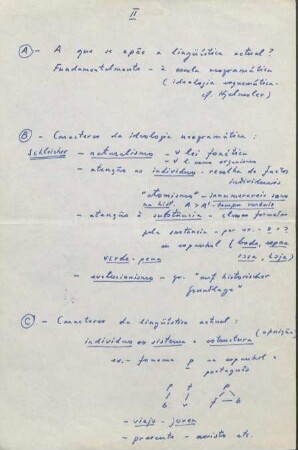 II
(A) - A que se opõe a lingüística actual?
Fundamentalmente - à escola neogramática
(ideologia
cf. Hjelmslev)
(B) - Caracteres da ideologia neogramática:
Schleicher - naturalismo - lei fonética
como organismo
- atenção ao indivíduo - recolha de factos
individuais
"atomismo" - 
na hist. A > A' - tempo verbais
- atenção à substância - classes formadas
pela substância - por ex. - o + e
em espanhol (boda,
rosa, hoja)
verde - pena
- evolucionismo - gr. "auf historischer
Grundlage"
(C) - Caracteres da lingüística actual:
indivíduo vs sistema e estrutura (oposição)
ex. - fonema p no espanhol e
português
p t p
b v f b
- viejo - joven
- presente - aoristo etc.